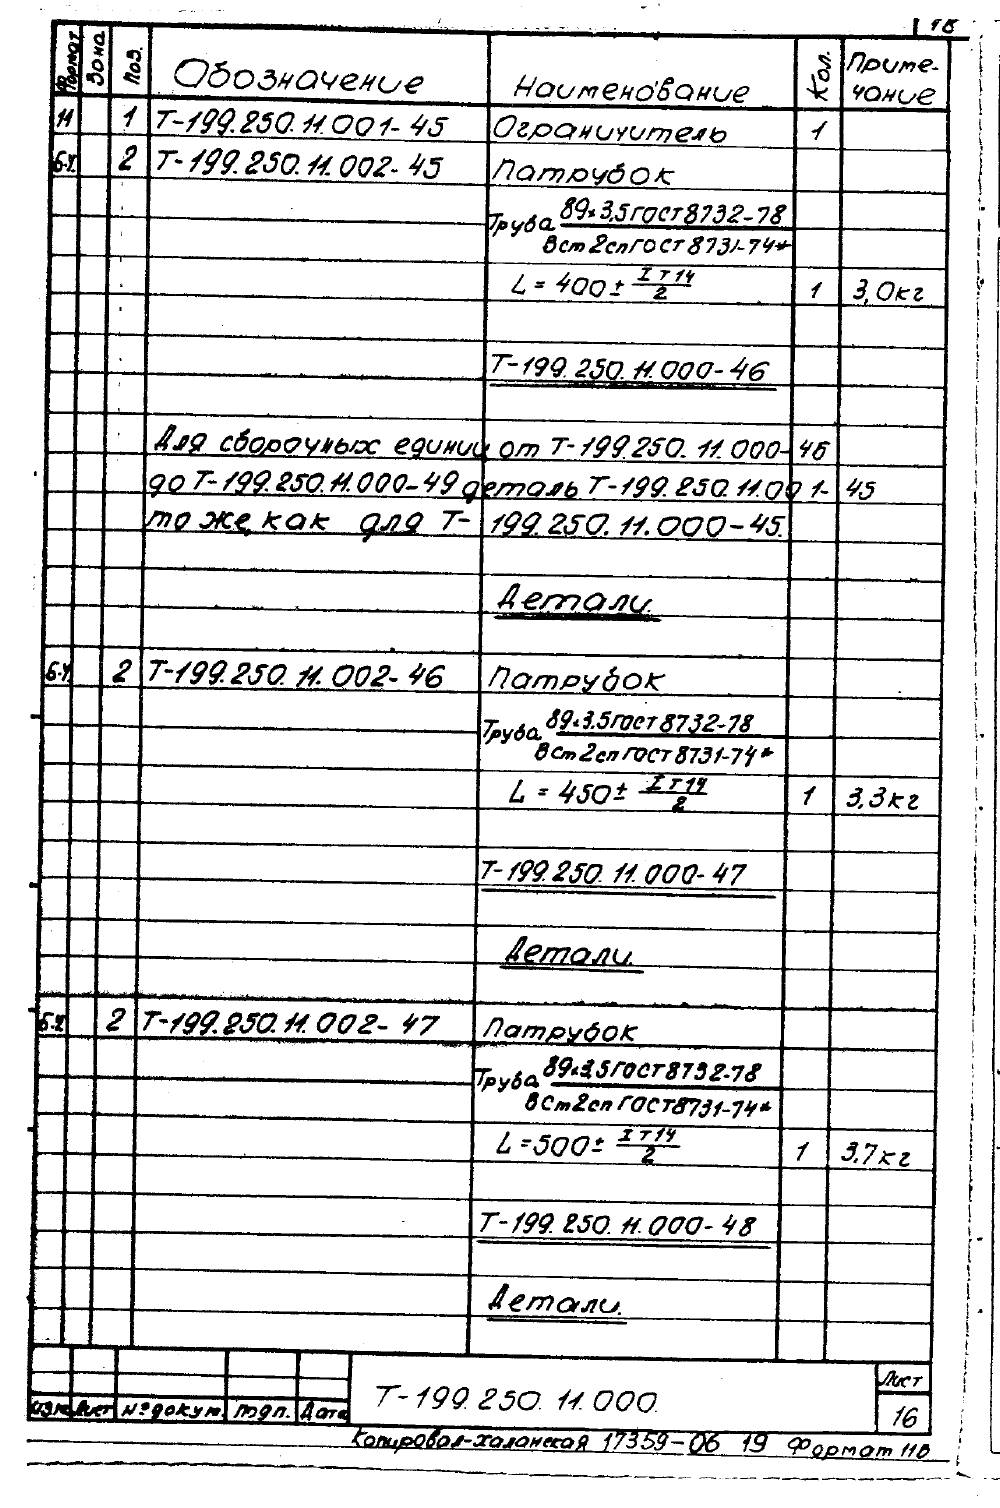 18
Формат Зона Поз. Обозначение Наименование Кол. Приме-
чание
11 1 Т-199.250.11.001-45 Ограничитель 1
Б.Ч. 2 Т-199.250.11.002-45 Патрубок
Труба 89×3,5 ГОСТ 8732-78
Вст2сп ГОСТ 8731-74*
L = 400 ± IT14/2 1 3,0кг
Т-199.250.11.000-46
Для сборочных единиц от Т-199.250.11.000-46
до Т-199.250.11.000-49 деталь Т-199.250.11.001-45
то же, как для Т-199.250.11.000-45.
Детали.
Б.Ч. 2 Т-199.250.11.002-46 Патрубок
Труба 89×3.5 ГОСТ 8732-78
Вст2сп ГОСТ 8731-74*
L = 450 ± IT14/2 1 3,3кг
Т-199.250.11.000-47
Детали.
Б.Ч. 2 Т-199.250.11.002-47 Патрубок
Труба 89×3,5 ГОСТ 8732-78
Вст2сп ГОСТ 8731-74*
L = 500 ± IT14/2 1 3.7кг
Т-199.250.11.000-48
Детали.
Изм Лист № докум. Подп. Дата Т-199.250.11.000 Лист
16
Копировал-Халанская 17359-06 19 Формат 11В